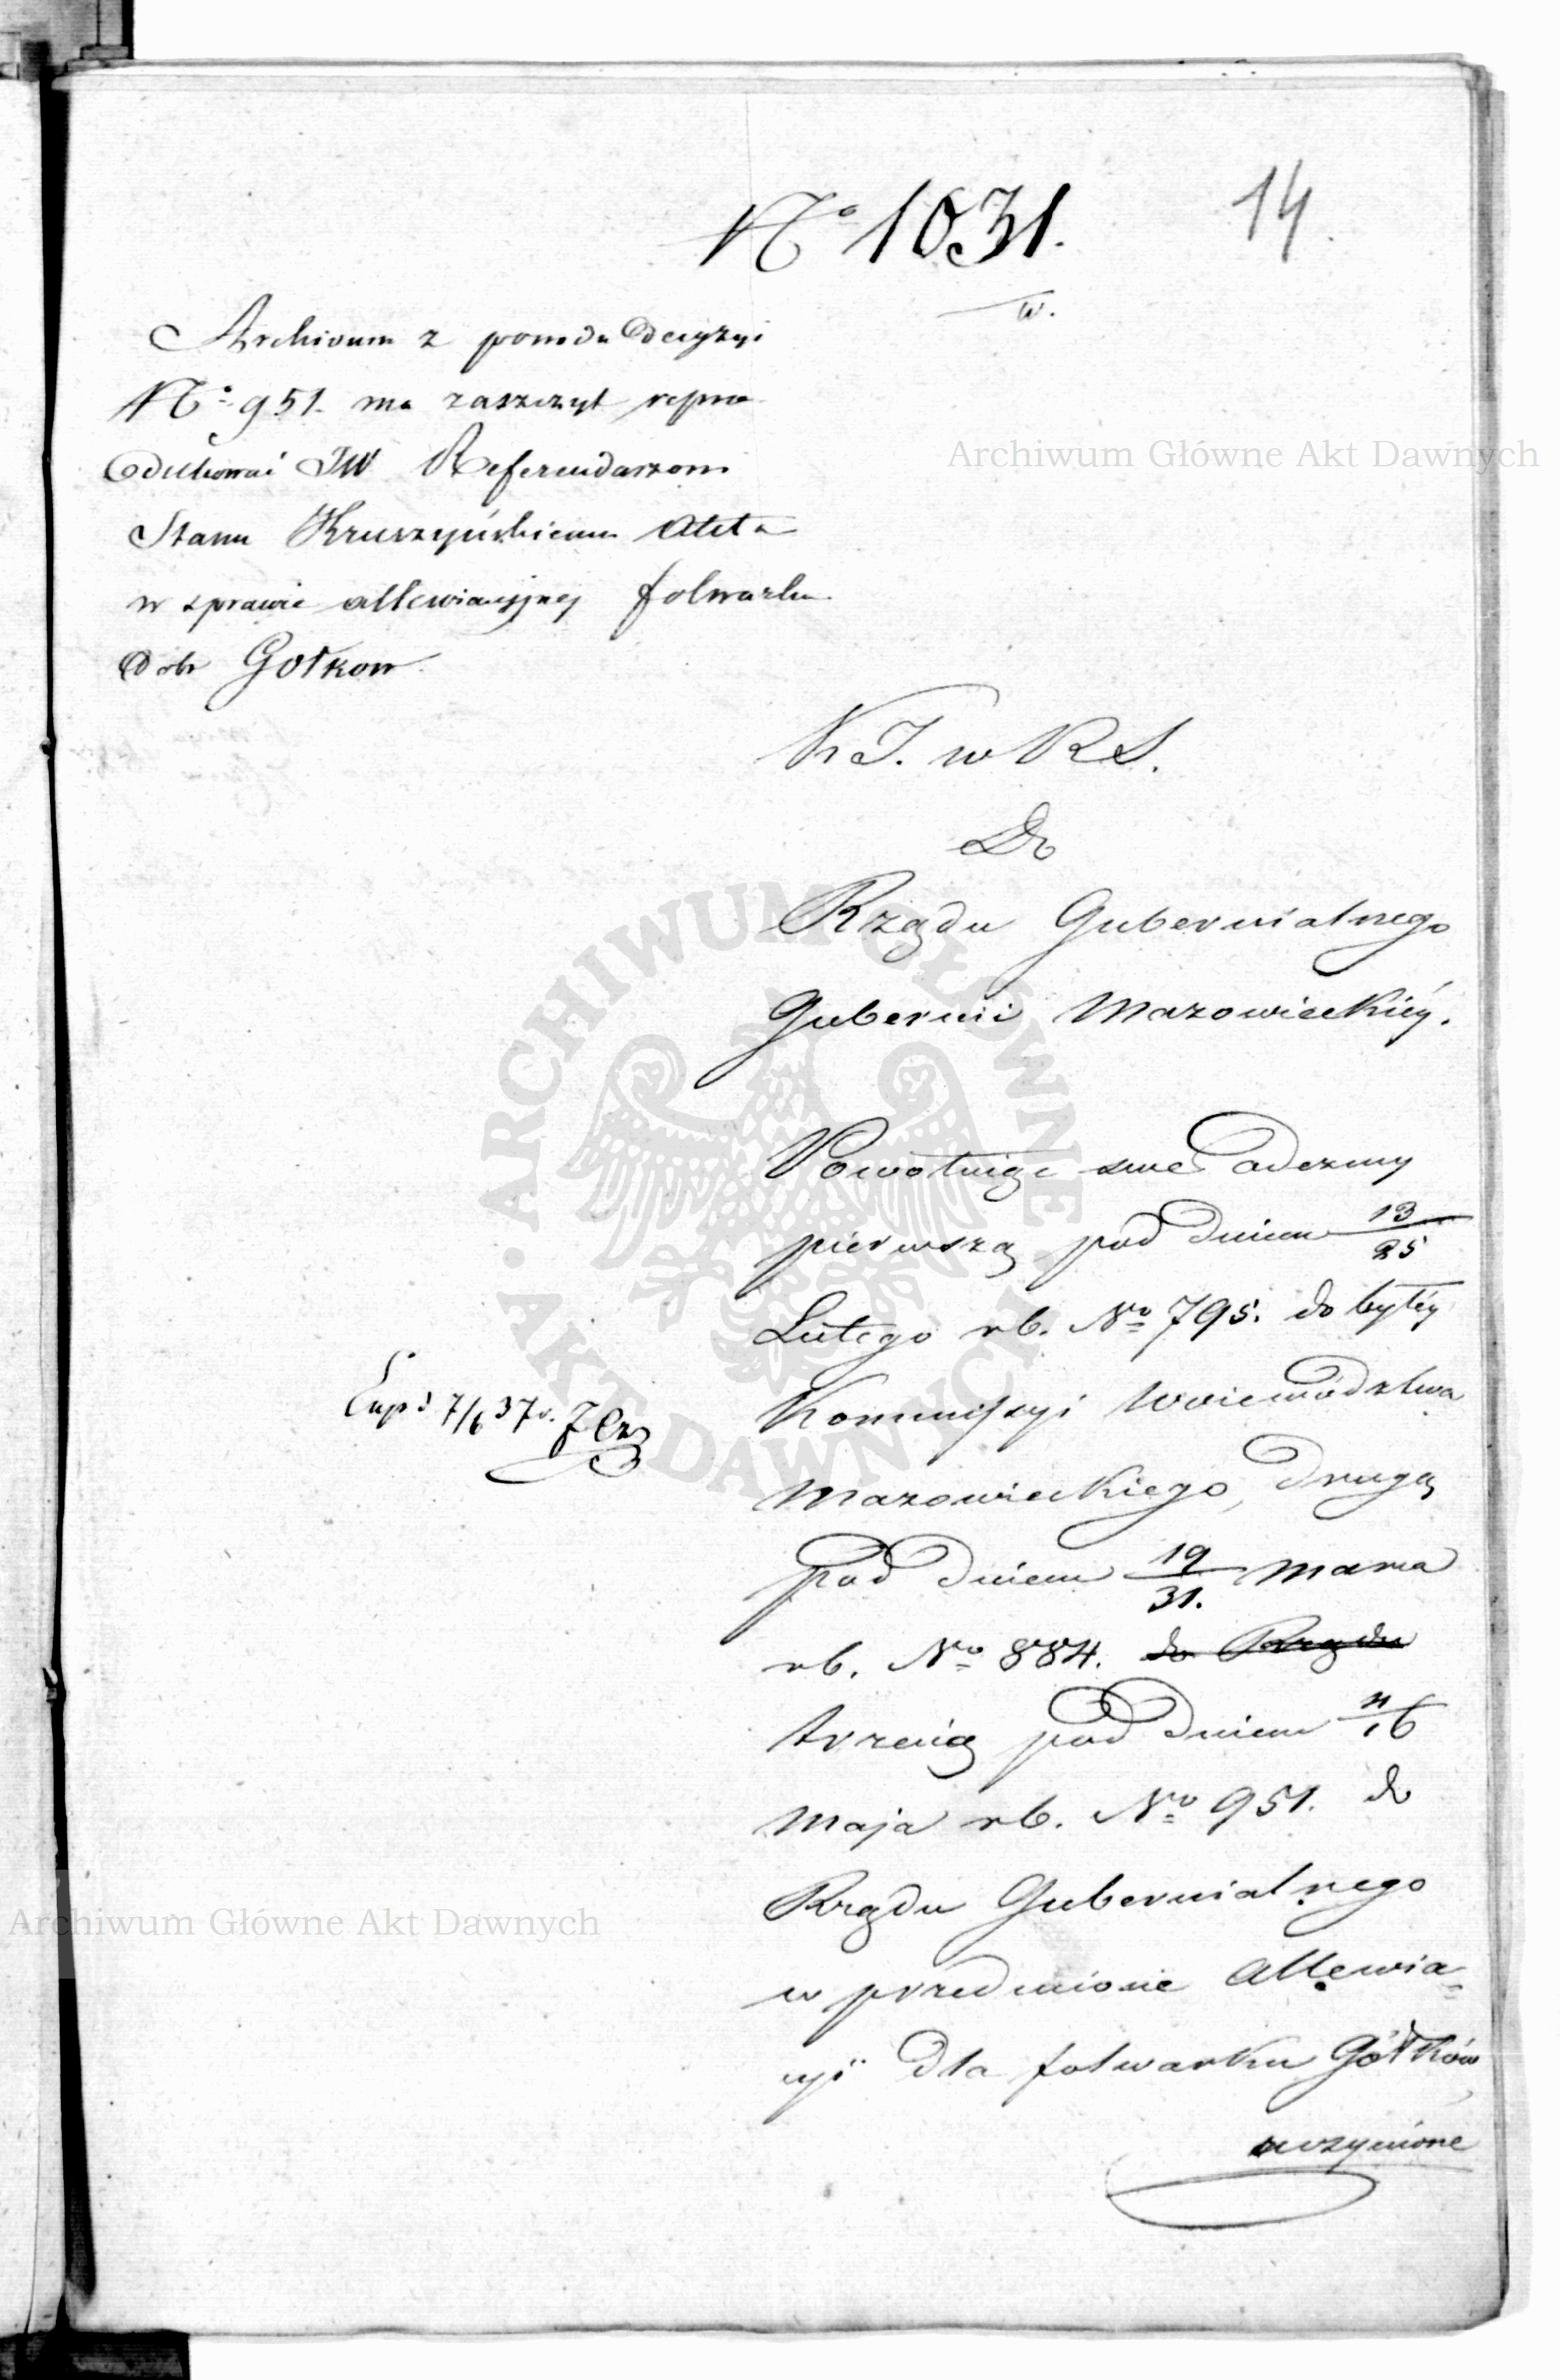 14.
No 1031.
w.
Archivum z powodu Decyzyi
No 951. ma zaszczyt repro
dukować JW Referendarzowi
Stanu Kruszyńskiemu Akta
w sprawie allewiacyjnej folwarku
Dobr Gołkow.
K. J. w K S.
Do
Rządu Gubernialnego
Gubernii Mazowieckiéy.
Powołuiąc swe odezwy
pierwszą pod dniem 13/25
Lutego rb. No 795. do byłéy
Kommissyi Woiewództwa
Mazowieckiego, drugą
pod dniem 19/31. Marca
rb. No 884. do Rządu
trzecią pod dniem 4/16
Maja rb. No 951. do
Rządu Gubernialnego
w przedmiocie Allewia-
cyi dla folwarku Gółków
uczynione
7/6 37 r.
Archiwum Główne Akt Dawnych
Archiwum Główne Akt Dawnych
ARCHIWUM GŁÓWNE AKT DAWNYCH